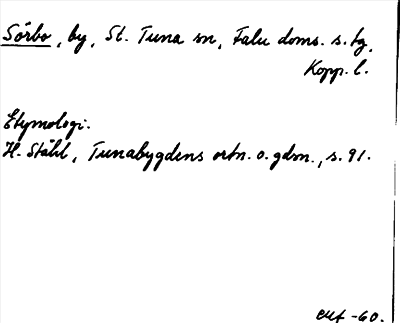 Sörbo, by, St. Tuna sn, Falu doms. s. tg,
Kopp. l.
Etymologi.
H. Ståhl, Tunabygdens ortn. o. gdsn., s. 91.
-60.